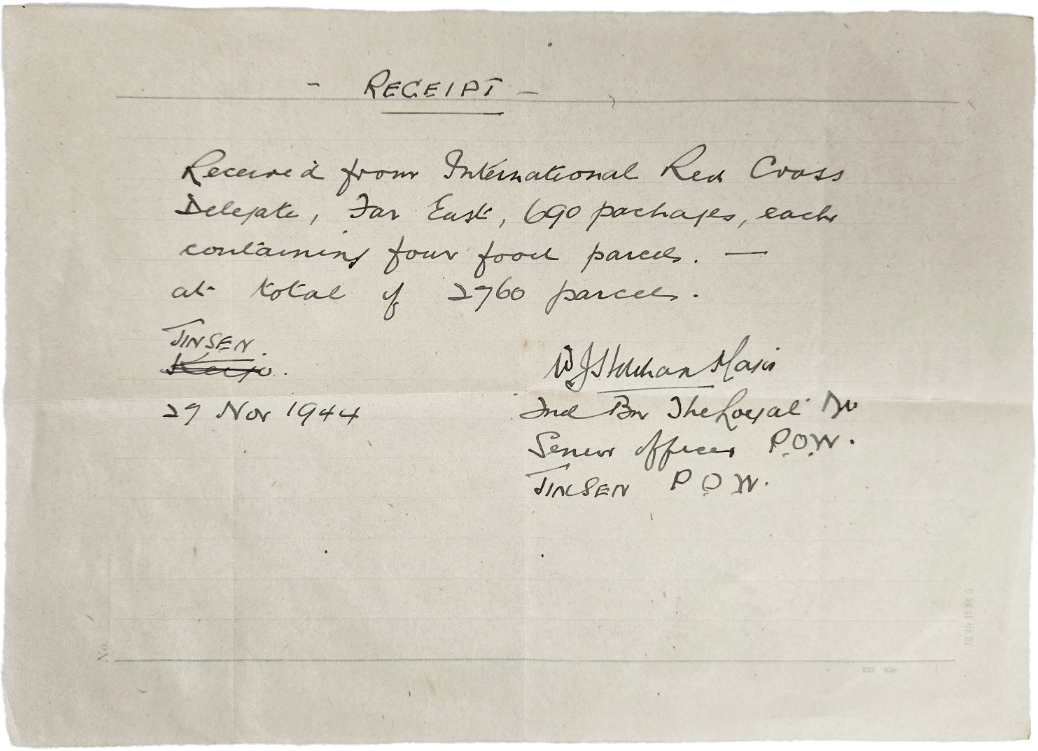 - RECEIPT -
Received from International Red Cross
Delegate, Far East, 690 packages, each
containing four food parcels. —
at total of 2760 parcels.
JINSEN
Keijo.
27 Nov 1944
Major
2nd Bn The Loyal
Senior Officer P.O.W.
JINSEN P.O.W.
No.